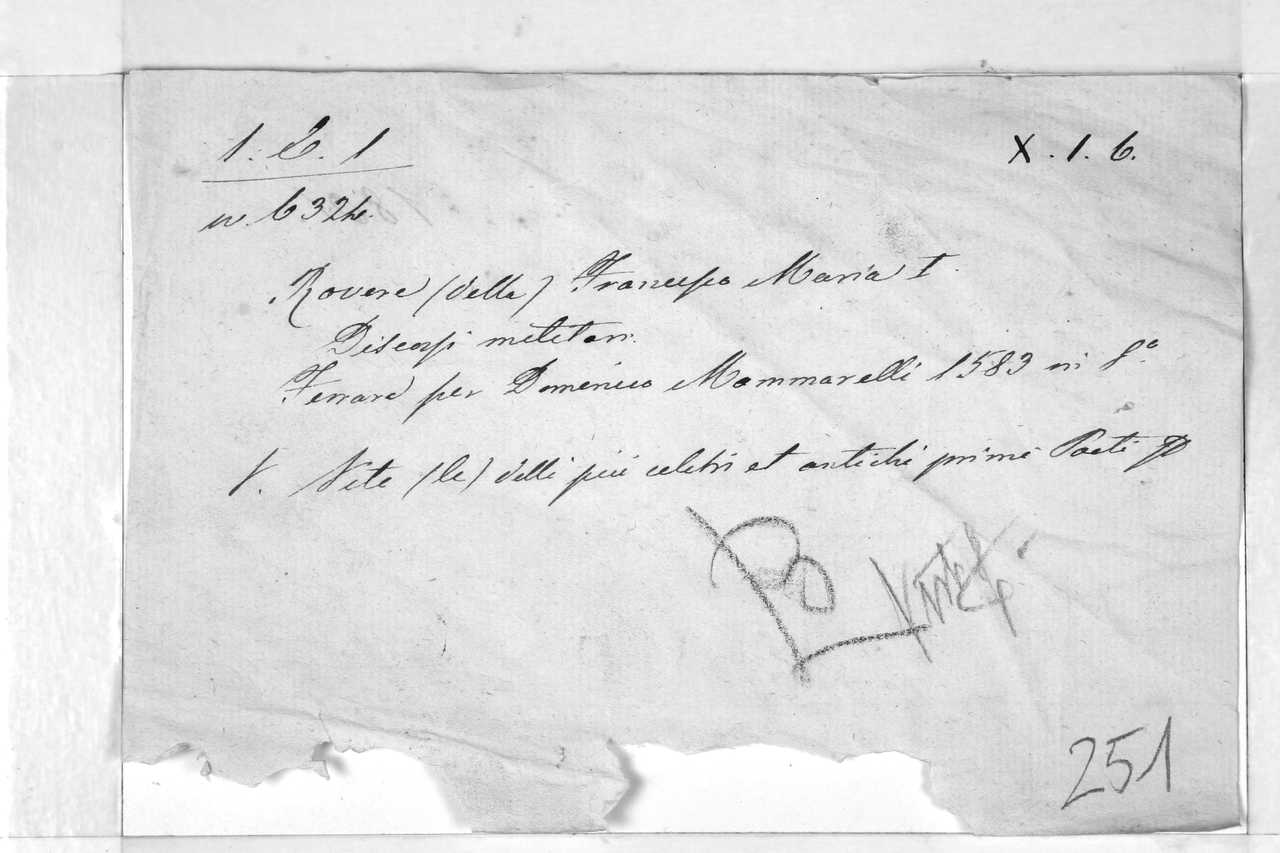 1. 2. 1
X . 1. 6.
n. 6324.
Rovere (della) Francesco Maria I.
Discorsi militari.
Ferrara per Domenico Mammarelli 1583 in 8.°
V. Vite (le) delli più celebri et antichi primi Poeti
251